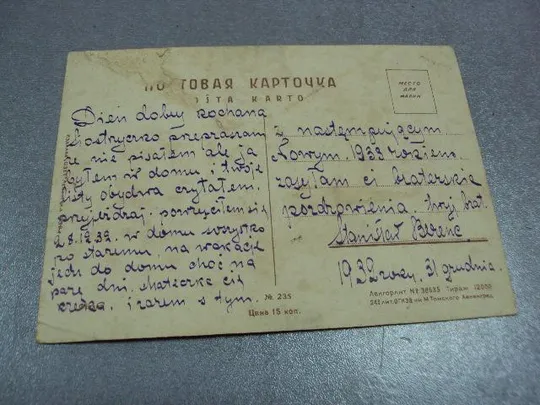 ПОЧТОВАЯ КАРТОЧКА
KARTO
МЕСТО
ДЛЯ
МАРКИ
Dień dobry kochana
siostryczko przepraszam
że nie pisałem ale ja
byłem w domu i twoje
listy obydwa czytałem.
przyjeżdżaj
28.12.32. w domu wszystko
po staremu, na wakacje
jedź do domu choć na
parę dni, Mateczka cię
czeka, i razem s tym.
z nastempującym
Nowym 1933 rokiem
zasyłam ci braterskie
pozdrowienia twój brat
Stanisław Berenc
1932 roku, 31 grudnia.
№ 235
Цена 15 коп.
Ленгорлит № 38633 Тираж 12000